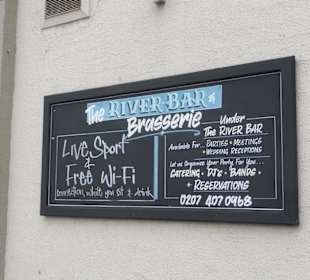 The RIVER BAR &
Brasserie
Live Sport
&
Free Wi-Fi
connection, while you sit & drink
Under
The RIVER BAR
Available For... PARTIES • MEETINGS
• WEDDING RECEPTIONS
Let us Organize Your Party, For You...
CATERING • DJ's • BANDS •
• RESERVATIONS
0207 407 0968